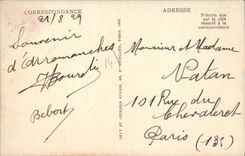 CORRESPONDANCE
21/8/29
Souvenir
d'Arromanches
Bebert
ADRESSE
N'écrire que
sur le côté
réservé à la
correspondance
Monsieur et Madame
Vatan
101 Rue du
Chevaleret
Paris (13e)